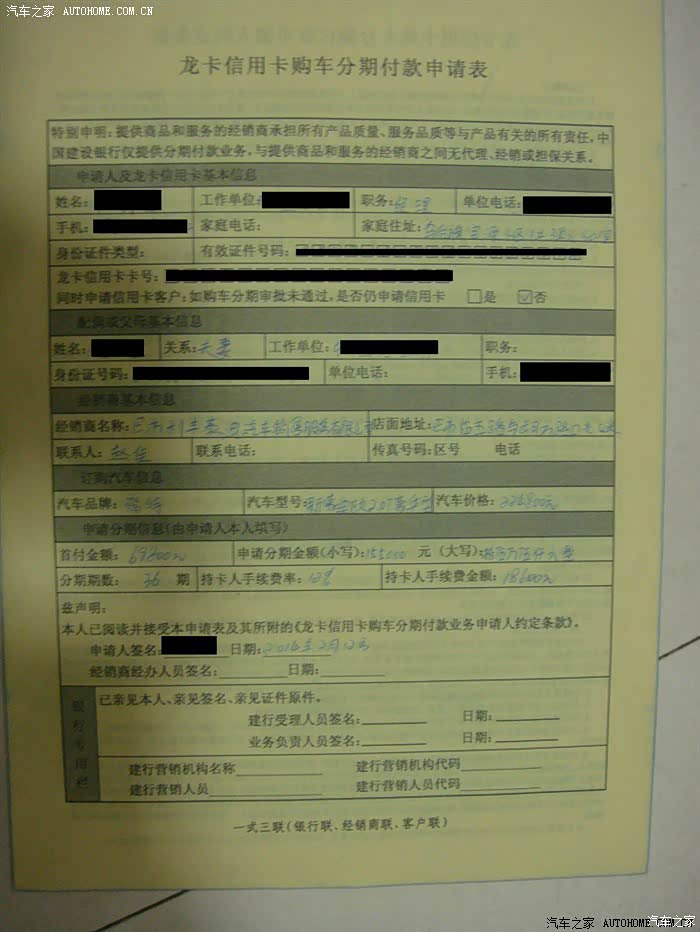 汽车之家 AUTOHOME.COM.CN
龙卡信用卡购车分期付款申请表
特别申明：提供商品和服务的经销商承担所有产品质量、服务品质等与产品有关的所有责任，中
国建设银行仅提供分期付款业务，与提供商品和服务的经销商之间无代理、经销或担保关系。
申请人及龙卡信用卡基本信息
姓名： 工作单位： 职务：经理 单位电话：
手机： 家庭电话： 家庭住址：
身份证件类型： 有效证件号码：
龙卡信用卡卡号：
同时申请信用卡客户：如购车分期审批未通过，是否仍申请信用卡 □是 ☑否
配偶或父母基本信息
姓名： 关系：夫妻 工作单位： 职务：
身份证号码： 单位电话： 手机：
经销商基本信息
经销商名称： 店面地址：
联系人： 联系电话： 传真号码：区号 电话
订购汽车信息
汽车品牌： 汽车型号： 汽车价格：
申请分期信息（由申请人本人填写）
首付金额：69800元 申请分期金额（小写）：155000 元 （大写）：
分期期数：36 期 持卡人手续费率：12% 持卡人手续费金额：18600元
兹声明：
本人已阅读并接受本申请表及其所附的《龙卡信用卡购车分期付款业务申请人约定条款》。
申请人签名： 日期：
经销商经办人员签名： 日期：
银行专用栏
已亲见本人、亲见签名、亲见证件原件。
建行受理人员签名： 日期：
业务负责人员签名： 日期：
建行营销机构名称 建行营销机构代码
建行营销人员 建行营销人员代码
一式三联（银行联、经销商联、客户联）
汽车之家 AUTOHOME.COM.CN
汽车之家